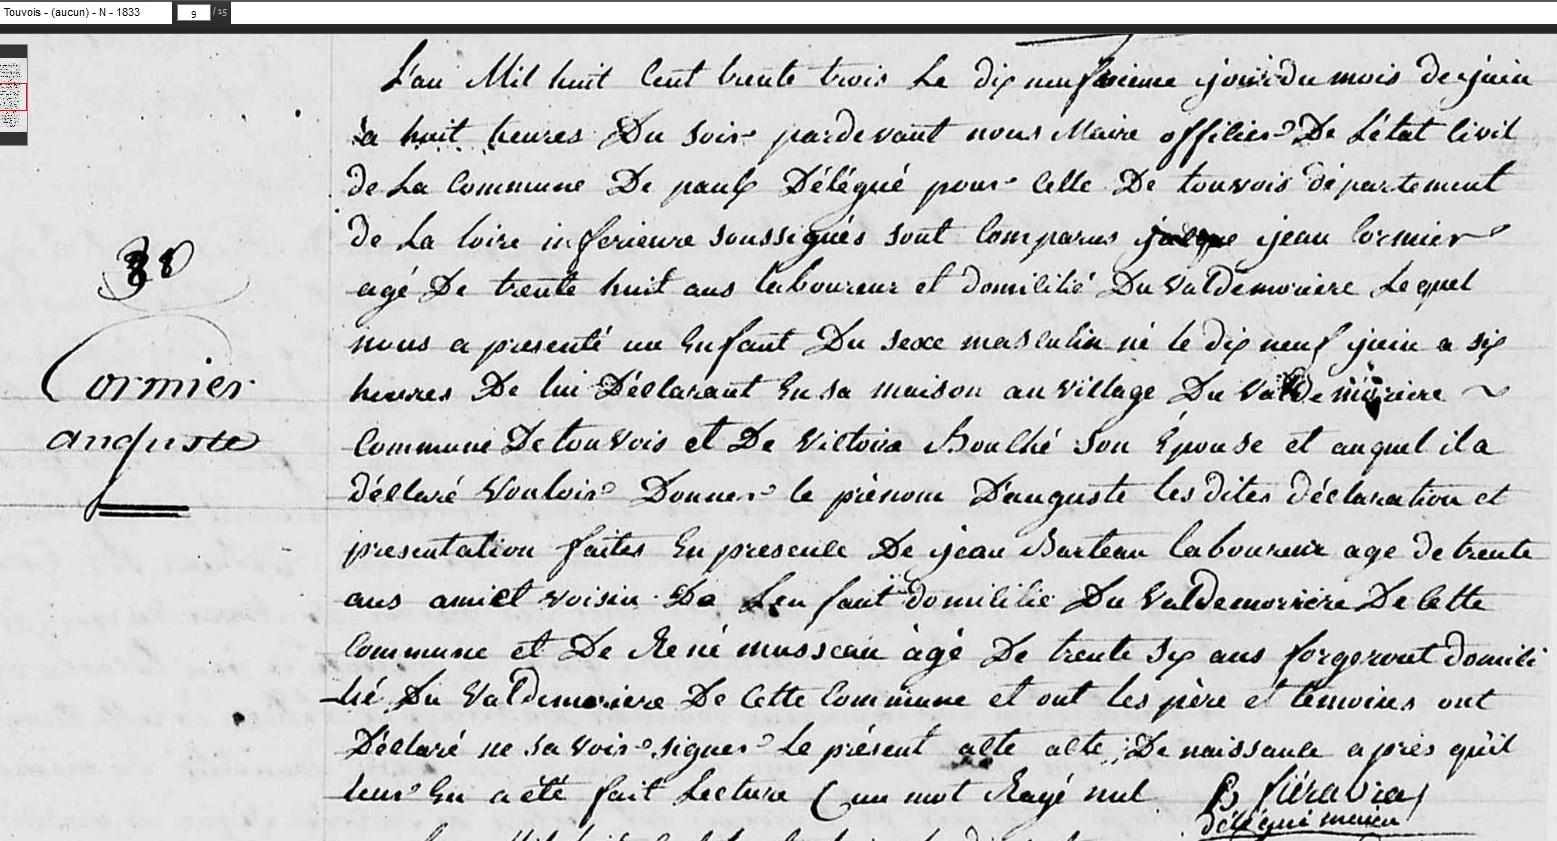 Touvois - (aucun) - N - 1833
9 / 15
L'an Mil huit Cent trente trois Le dix neufvieme jour du mois de juin
a huit heures Du Soir pardevant nous Maire officier De L'état Civil
de La Commune De paulx Délégué pour Celle De touvois département
de La loire inferieure soussignés sont Comparus jean Cormier
agé De trente huit ans laboureur et domicilié Du Valdemoriere Lequel
nous a presenté un Enfant Du sexe masculin né le dix neuf juin a six
heures De lui Déclarant En sa maison au village Du Valdemoriere
38
Cormier
auguste
Commune De touvois et De Victoire Bouché Son Epouse et auquel il a
déclaré Vouloir Donner le prénom D'auguste les dites déclaration et
presentation faites En presence De jean Barteau laboureur age de trente
ans ami et voisin De L'enfant domicilié Du Valdemoriere De Cette
Commune et De René musseau àgé De trente Six ans forgeront domici
lié Du Valdemoriere De Cette Commune et ont les père et temoins ont
Déclaré ne savoir signer Le présent acte acte De naissance après qu'il
leur En a été fait Lecture ( un mot Rayé nul
délégué